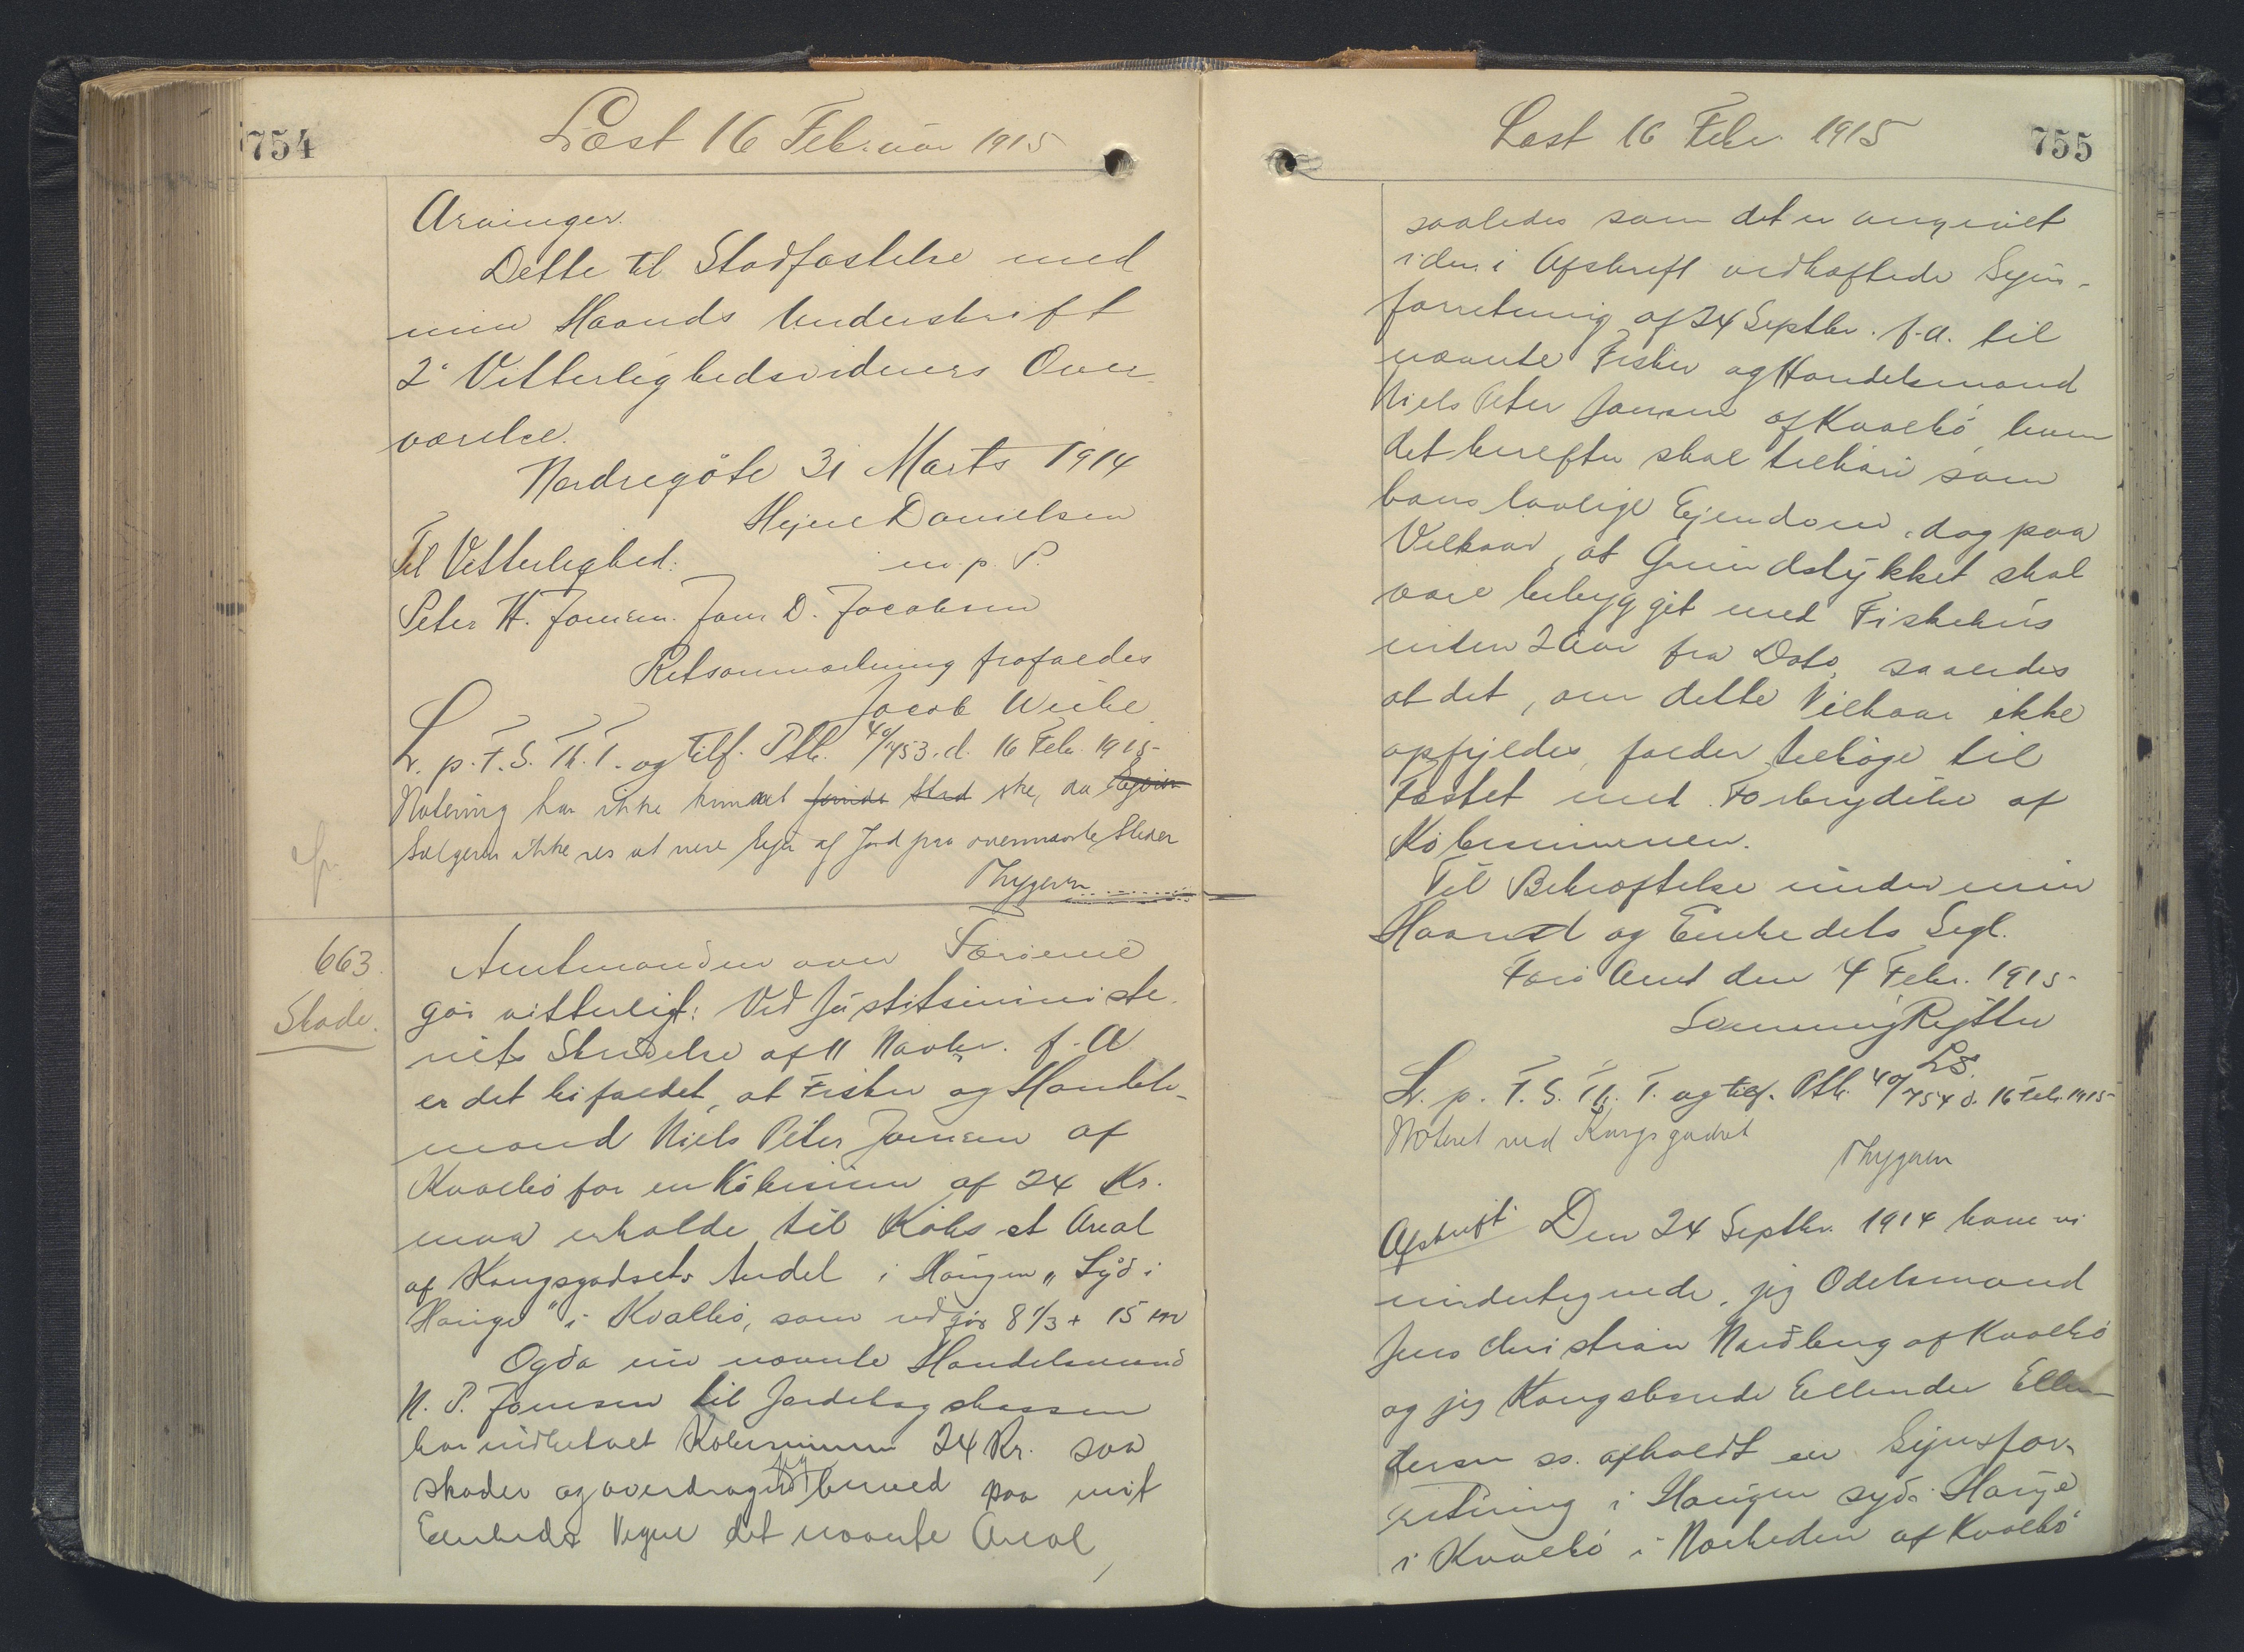 754
Læst 16 Februar 1915
Arvinger.
Dette til Stadfæstelse med
min Haands Underskrift
2de Vitterlighedsvidners Over-
værelse.
Nordregöte 31 Marts 1914
Hejne Danielsen
Til Vitterlighed: m. p. P.
Peter H. Joensen. Joen D. Jacobsen
Retsanmærkning frafaldes
Jacob Weihe
L. p. F. S. Th. T. og tilf. Ptk. 40/753. d. 16 Febr. 1915
Notering har ikke kunnet finde Sted ske, da
Sælgeren ikke ses at være Ejer af Jord paa ovennævnte Steder
Thygesen
663.
Skøde.
Amtmanden over Færöerne
gör vitterligt: Ved Justitsministe-
riets Skrivelse af 11 Novbr. f. A.
er det bifaldet, at Fisker og Handels-
mand Niels Peter Joensen af
Kvalbö for en Köbesum af 24 Kr.
maa erholde til Köbs et Areal
af Kongsgodsets Andel i Haugen „Syd i
Hauge" i Kvalbö, som udgör 8 1/3 + 15 m
Og da nu nævnte Handelsmand
N. P. Joensen til Jordebogskassen
har indbetalt Köbesummen 24 Kr. saa
skøder og overdrager jeg herved paa mit
Embeds Vegne det nævnte Areal,
Læst 16 Febr. 1915
755
saaledes som det er angivet
i den i Afskrift vedhæftede Syns-
forretning af 24 Septbr. f. A. til
nævnte Fisker og Handelsmand
Niels Peter Joensen af Kvalbö, hvem
det herefter skal tilhöre som
hans lovlige Ejendom, dog paa
Vilkaar, at Grundstykket skal
være bebygget med Fiskehus
inden 2 Aar fra Dato, saaledes
at det, om dette Vilkaar ikke
opfyldes, falder tilbage til
Fæstet med Fortrydelse af
Köbesummen.
Til Bekræftelse under min
Haand og Embedets Segl.
Færö Amt den 4 Febr. 1915
Svenning Rytter
L.S.
L. p. F. S. Th. T. og tilf. Ptk. 40/754 d. 16 Febr. 1915
Noteret ved Kongsgodset
Thygesen
Afskrift. Den 24 Septbr. 1914 have vi
undertegnede, jeg Odelsmand
Jens Christian Nordberg af Kvalbö
og jeg Kongsbonde Ellender Ellen-
dersen ss. afholdt en Synsfor-
retning i Haugen syd i Hauge
i Kvalbö i Nærheden af Kvalbö